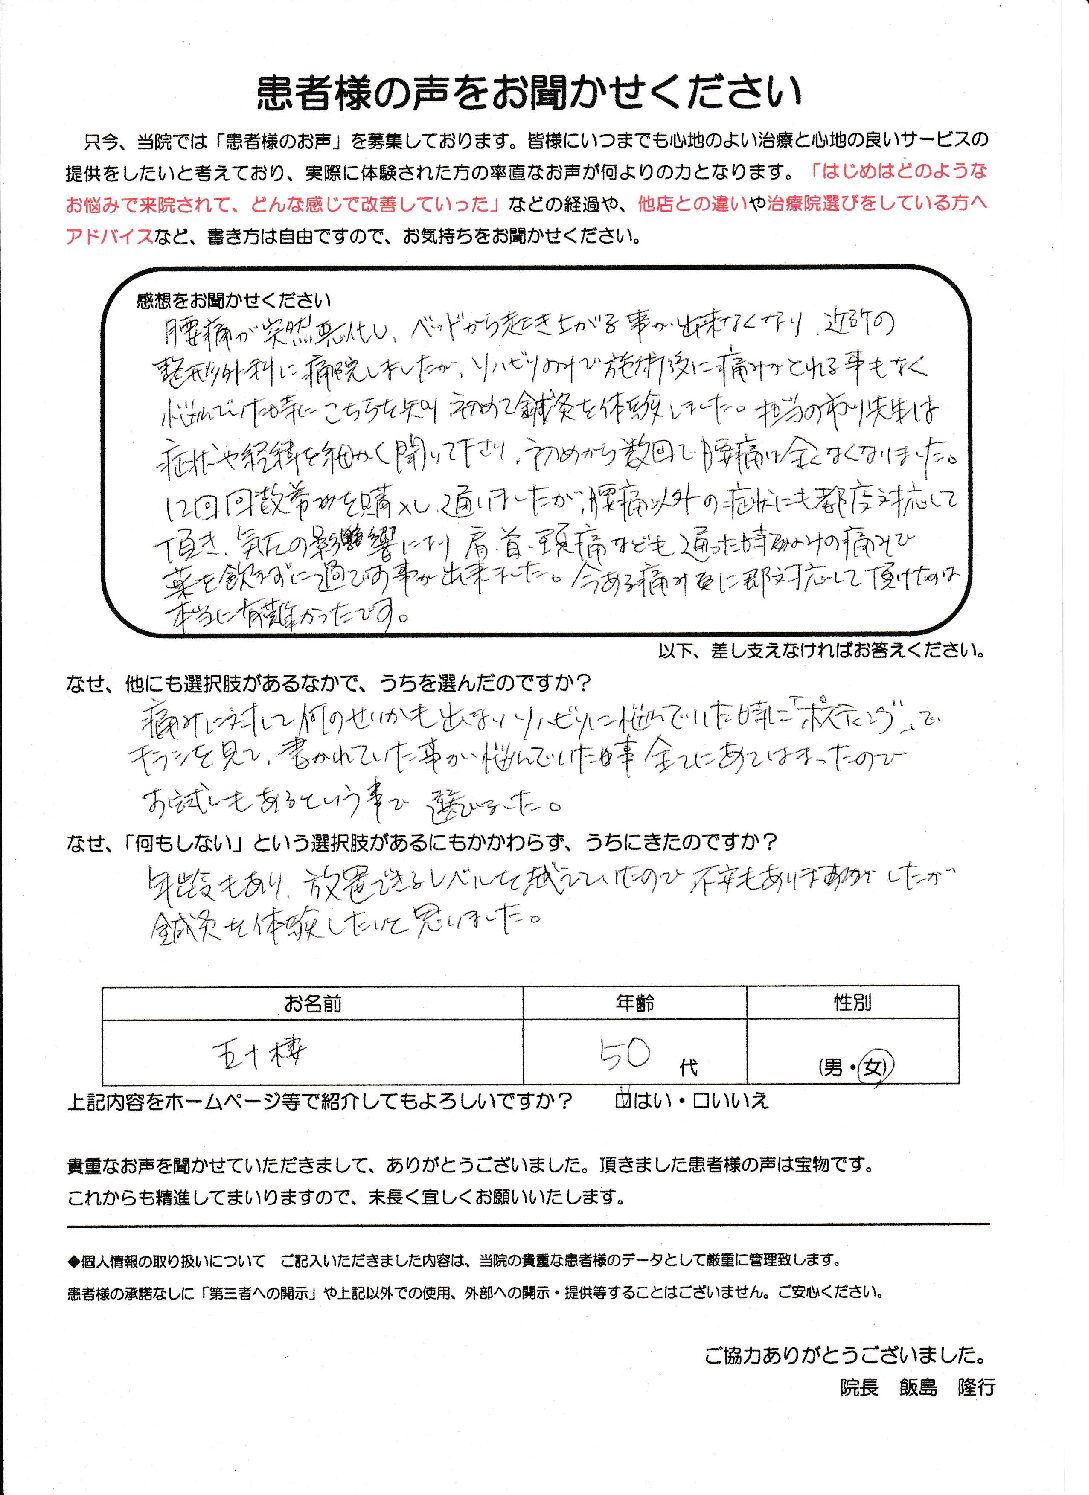 患者様の声をお聞かせください
只今、当院では「患者様のお声」を募集しております。皆様にいつまでも心地のよい治療と心地の良いサービスの
提供をしたいと考えており、実際に体験された方の率直なお声が何よりの力となります。「はじめはどのような
お悩みで来院されて、どんな感じで改善していった」などの経過や、他店との違いや治療院選びをしている方へ
アドバイスなど、書き方は自由ですので、お気持ちをお聞かせください。
感想をお聞かせください
腰痛が突然悪化し、ベッドから起き上がる事が出来なくなり、近所の
整形外科に痛院しましたが、リハビリのみで施術後に痛みがとれる事もなく
悩んでいた時にこちらを知り初めて鍼灸を体験しました。担当の市川先生は
症状や経緯を細かく聞いて下さり、初めから数回で腰痛は全くなくなりました。
12回回数券を購入し、通いましたが、腰痛以外の症状にも都度対応して
頂き、気圧の影響により肩・首・頭痛なども通った時の痛みで
薬を飲まずに過ごす事が出来ました。今ある痛みに都対応して頂けたのは
本当に有難かったです。
以下、差し支えなければお答えください。
なぜ、他にも選択肢があるなかで、うちを選んだのですか？
痛みに対して何のせいかも出ないリハビリに悩んでいた時に「ポスティング」で
チラシを見て、書かれていた事が悩んでいた事全てにあてはまったので
お試しもあるという事で選びました。
なぜ、「何もしない」という選択肢があるにもかかわらず、うちにきたのですか？
年齢もあり、放置できるレベルを越えていたので不安もありましたが
鍼灸を体験したいと思いました。
お名前 年齢 性別
五十棲 50 代 (男・女)
上記内容をホームページ等で紹介してもよろしいですか？ ☑はい・□いいえ
貴重なお声を聞かせていただきまして、ありがとうございました。頂きました患者様の声は宝物です。
これからも精進してまいりますので、末長く宜しくお願いいたします。
◆個人情報の取り扱いについて ご記入いただきました内容は、当院の貴重な患者様のデータとして厳重に管理致します。
患者様の承諾なしに「第三者への開示」や上記以外での使用、外部への開示・提供等することはございません。ご安心ください。
ご協力ありがとうございました。
院長 飯島 隆行